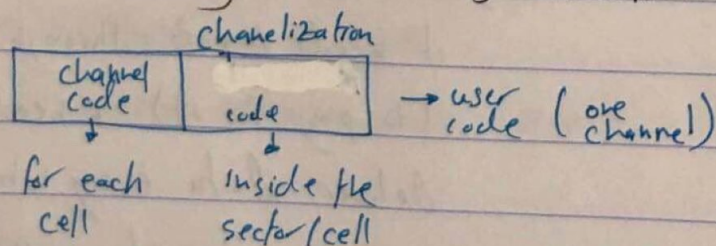 chanelization
channel
code
code
→ user
code ( one
channel)
for each
cell
inside the
sector/cell